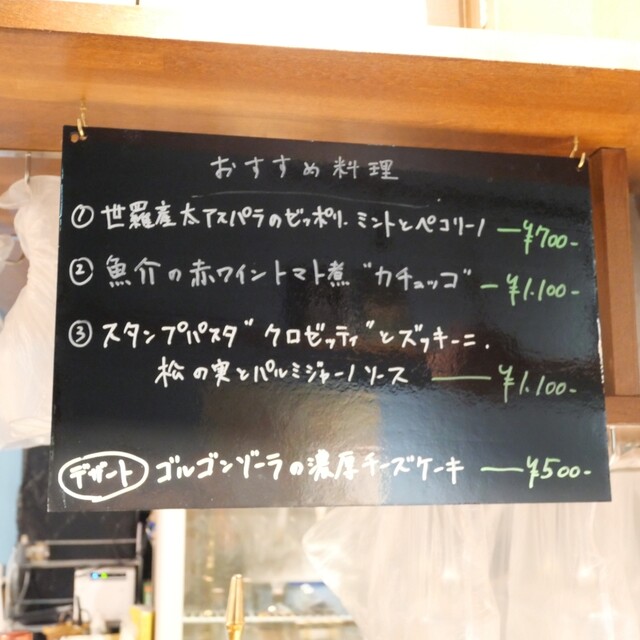 おすすめ料理
① 世羅産太アスパラのゼッポリ. ミントとペコリーノ —¥700-
② 魚介の赤ワイントマト煮"カチュッコ" —¥1.100-
③ スタンプパスタ"クロゼッティ"とズッキーニ.
松の実とパルミジャーノソース —¥1.100-
デザート ゴルゴンゾーラの濃厚チーズケーキ —¥500-